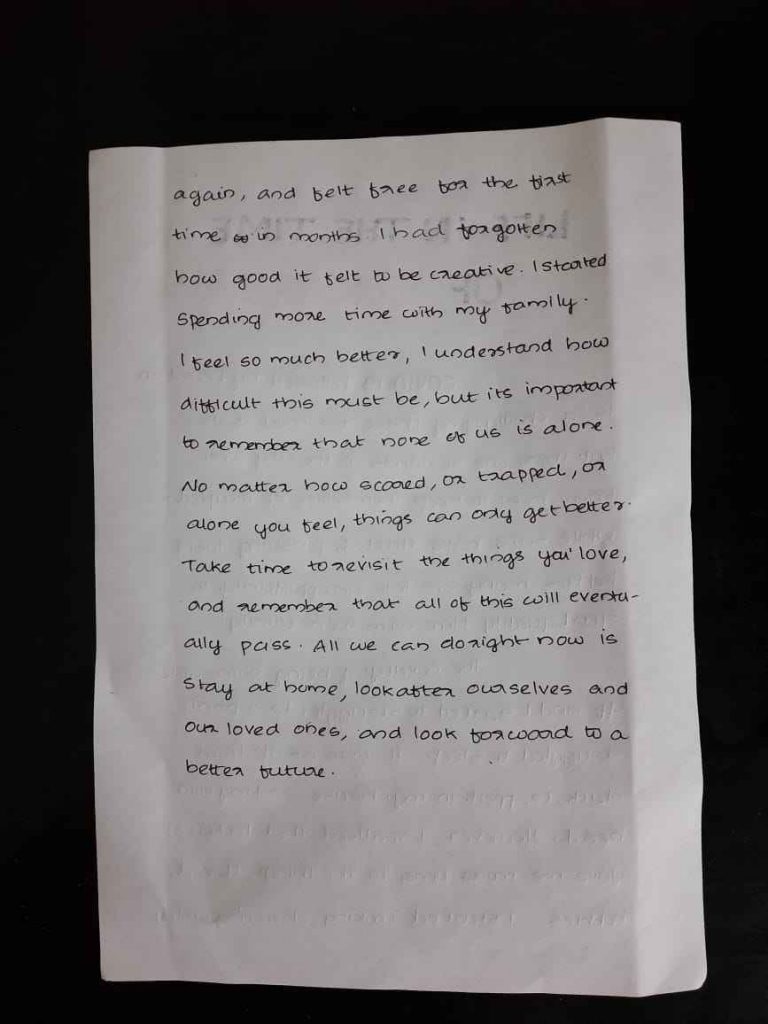 again, and felt free for the first
time in months I had forgotten
how good it felt to be creative. I started
spending more time with my family.
I feel so much better, I understand how
difficult this must be, but its important
to remember that none of us is alone.
No matter how scared, or trapped, or
alone you feel, things can only get better.
Take time to revisit the things you' love,
and remember that all of this will eventu-
ally pass. All we can do right now is
stay at home, look after ourselves and
our loved ones, and look forward to a
better future.